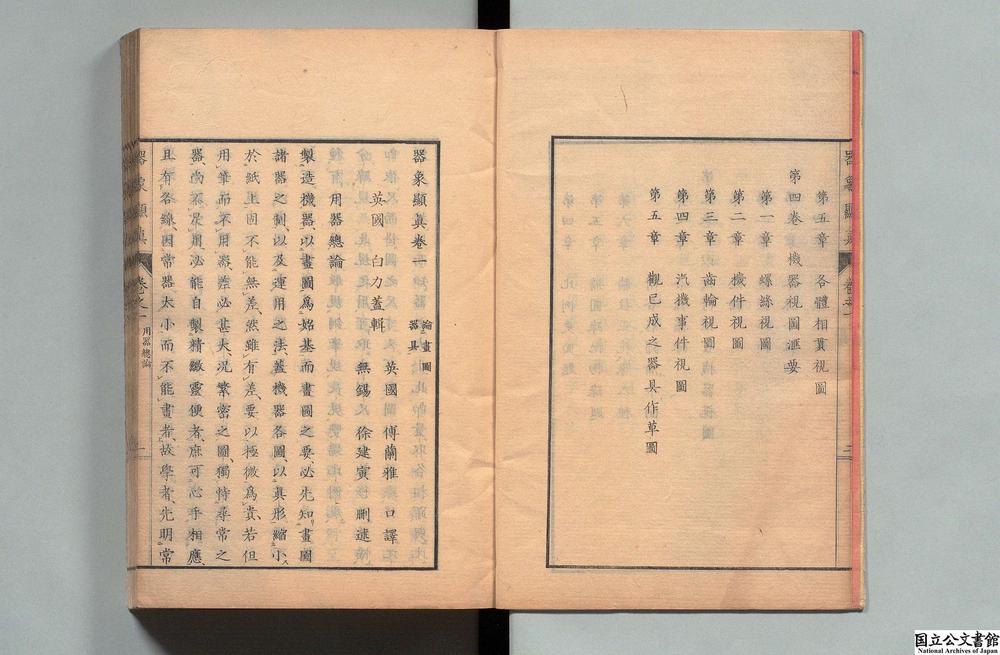 第五章 各體相貫視圖
第四卷 機器視圖滙要
第一章 螺絲視圖
第二章 機件視圖
第三章 齒輪視圖
第四章 汽機事件視圖
第五章 觀已成之器具作草圖
器象顯真卷一 論畫圖器具
英國 白力蓋輯 英國傅蘭雅 口譯
無錫 徐建寅 刪述
用器總論
製造機器、以畫圖為始基、而畫圖之要、必先知畫圖
諸器之制、以及運用之法、蓋機器各圖、以真形縮小
於紙上、固不能無差、然雖有差、要以極微為貴、若但
用筆而不用器、差必甚大、況繁密之圖、獨恃尋常之
器、尚不足用、必能自製精緻靈便者、庶可心手相應、
且有各線、因常器太小而不能畫者、故學者、先明常
器象顯真 卷之一 用器總論 一
国立公文書館
National Archives of Japan